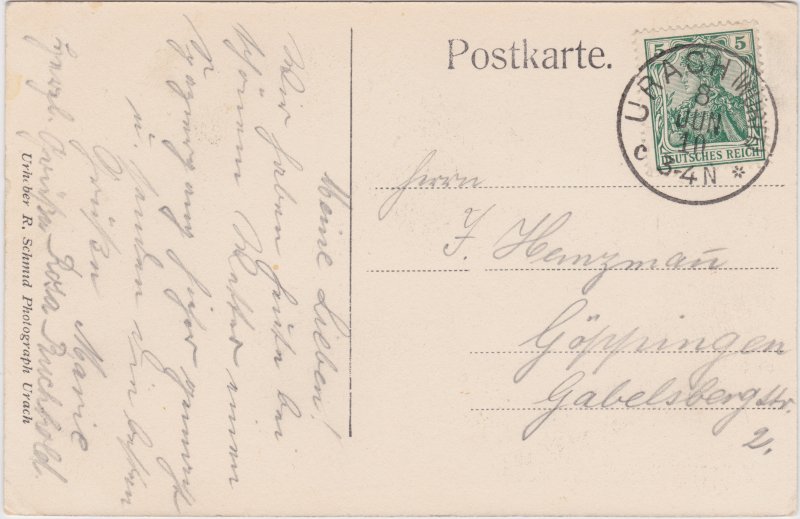 Postkarte.
5 5
DEUTSCHES REICH
URACH
8
JUN
10
3-4N *
c
Herrn
J. Heinzmann
Göppingen
Gabelsbergstr.
2.
Meine Lieben!
Wir haben heute bei
schönem Wetter einen
hierher gemacht
u. senden die besten
Grüßen
Marie
Herzl. Grüße Rosa
Urheber R. Schmid Photograph Urach